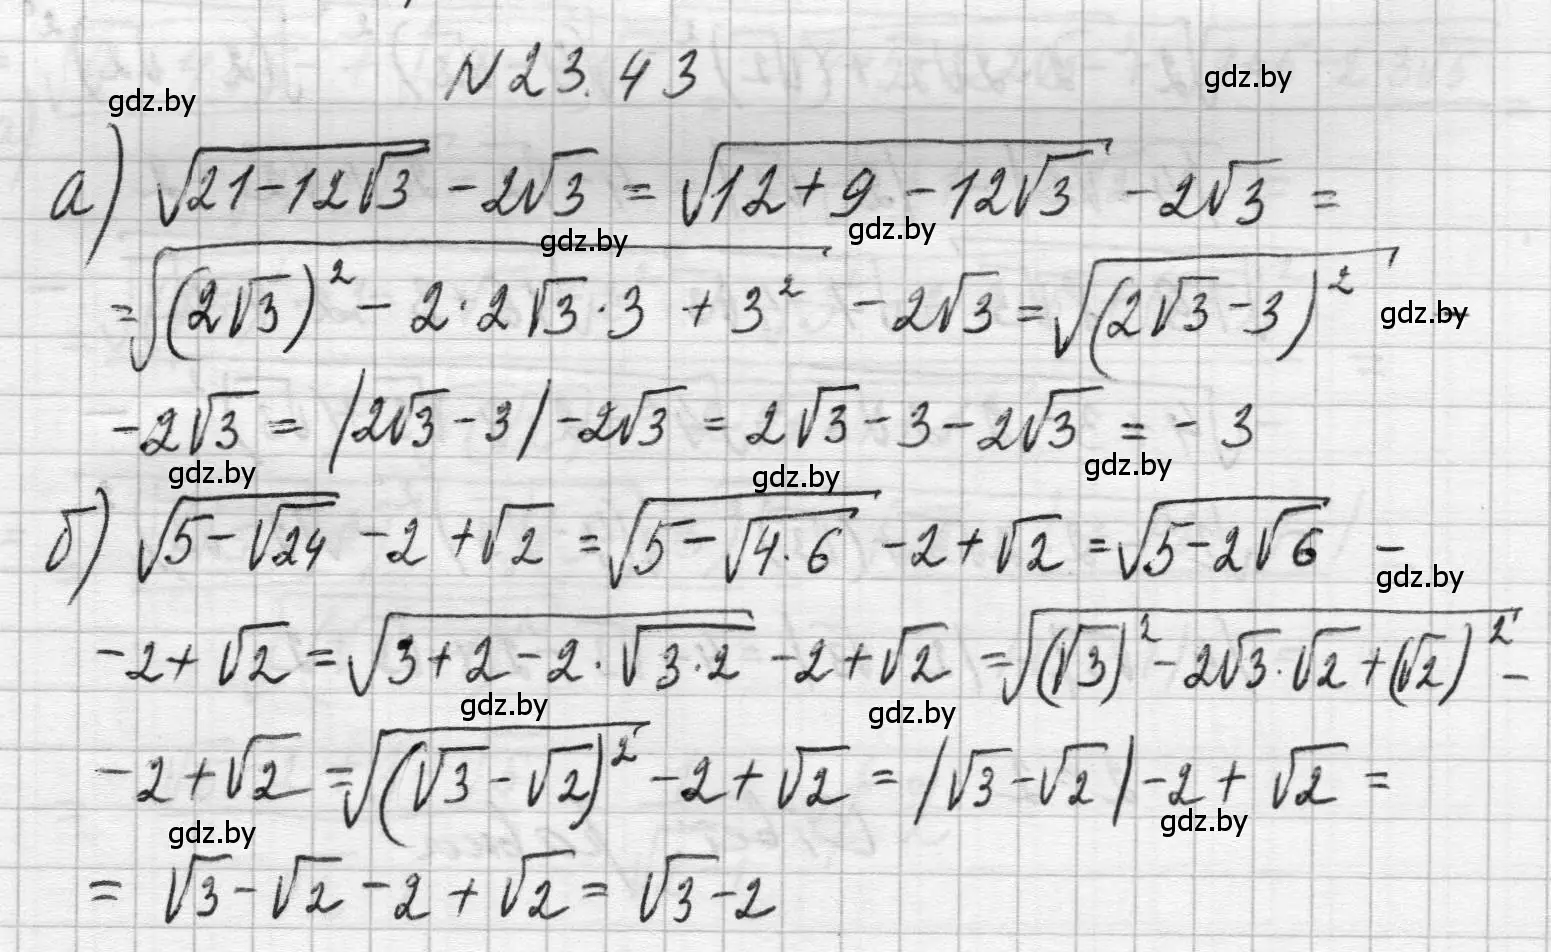 N 23.43
gdz.by
gdz.by
а) √(21-12√3) - 2√3 = √(12+9-12√3) - 2√3 =
gdz.by
gdz.by
= √((2√3)² - 2·2√3·3 + 3²) - 2√3 = √((2√3-3)²) -
gdz.by
- 2√3 = |2√3-3| - 2√3 = 2√3 - 3 - 2√3 = -3
gdz.by
gdz.by
gdz.by
б) √(5-√24) - 2 + √2 = √(5-√(4·6)) - 2 + √2 = √(5-2√6) -
gdz.by
- 2 + √2 = √(3+2-2·√(3·2)) - 2 + √2 = √((√3)² - 2√3·√2 + (√2)²) -
gdz.by
gdz.by
- 2 + √2 = √((√3-√2)²) - 2 + √2 = |√3-√2| - 2 + √2 =
gdz.by
gdz.by
= √3 - √2 - 2 + √2 = √3 - 2